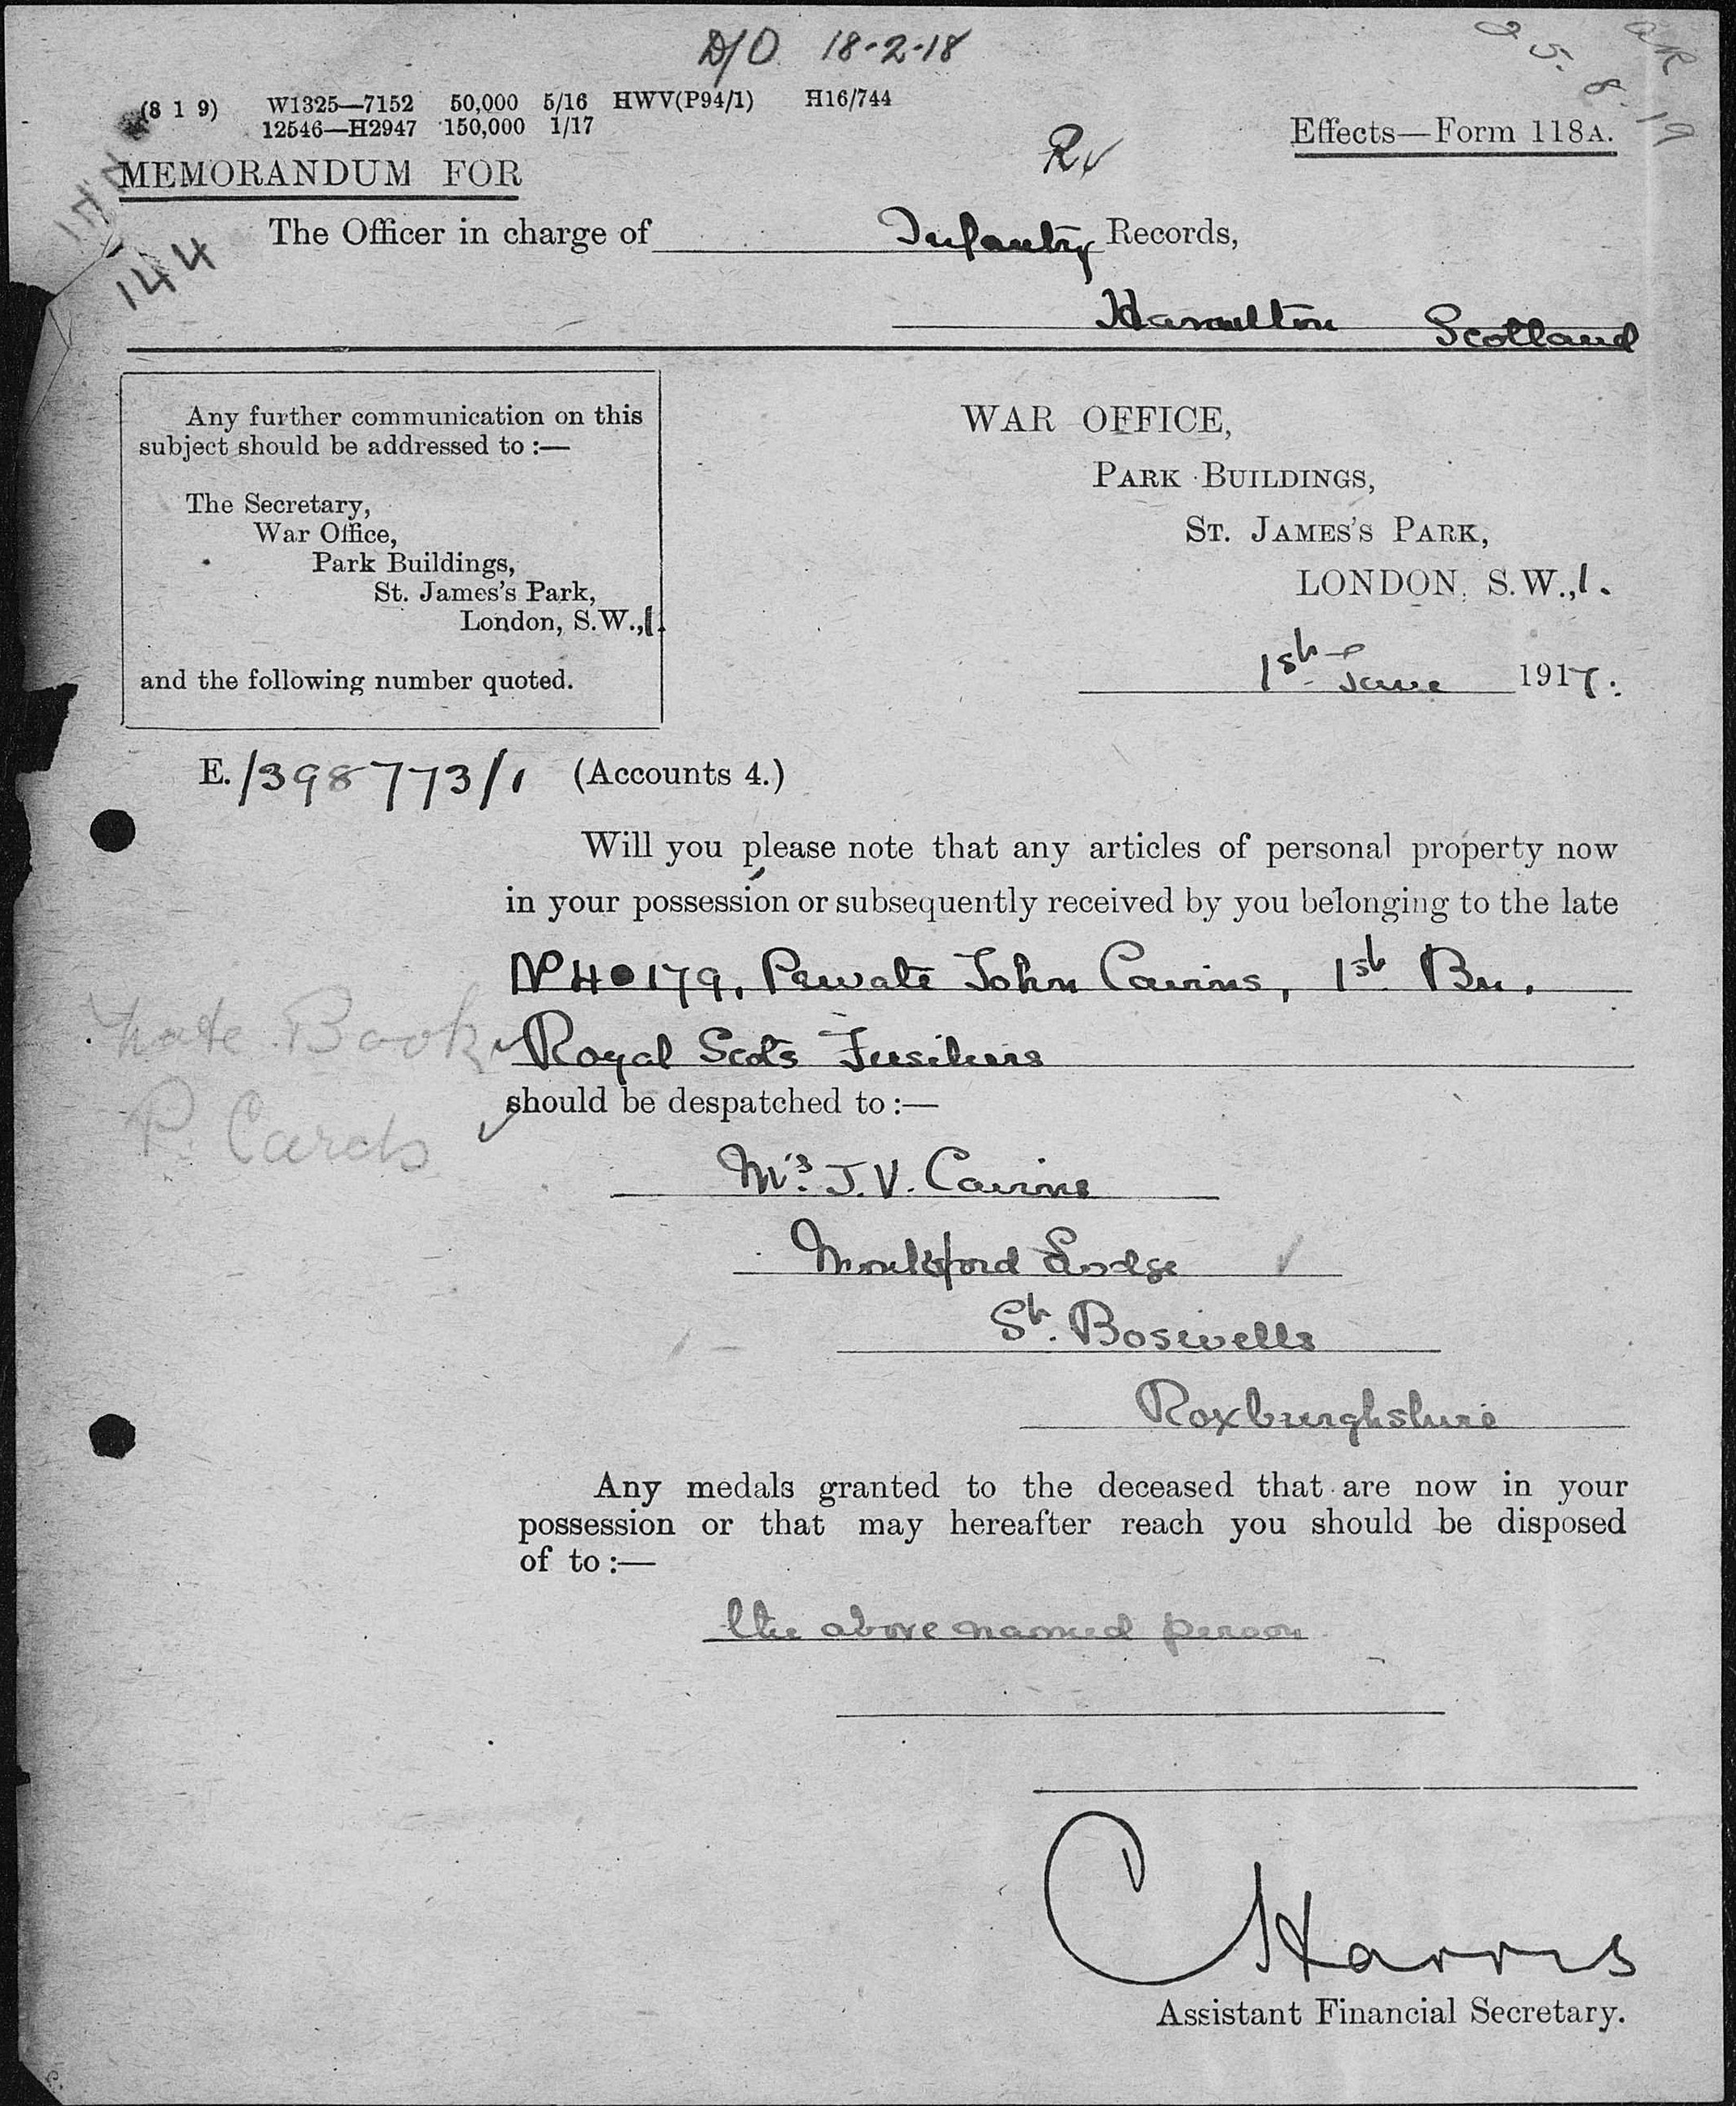 D/O 18-2-18
(8 1 9) W1325—7152 50,000 5/16 HWV(P94/1) H16/744
12546—H2947 150,000 1/17
Effects—Form 118A.
MEMORANDUM FOR
144
The Officer in charge of Infantry Records,
Hamilton Scotland
Any further communication on this
subject should be addressed to :—
The Secretary,
War Office,
Park Buildings,
St. James's Park,
London, S.W.,1.
and the following number quoted.
WAR OFFICE,
PARK BUILDINGS,
ST. JAMES'S PARK,
LONDON, S.W.,1.
1st June 1917.
E./398773/1 (Accounts 4.)
Will you please note that any articles of personal property now
in your possession or subsequently received by you belonging to the late
No 40179, Private John Cairns, 1st Bn.
Royal Scots Fusiliers
Note Book
P. Cards
should be despatched to :—
Mrs. J. V. Cairns
Lodge
St. Boswells
Roxburghshire
Any medals granted to the deceased that are now in your
possession or that may hereafter reach you should be disposed
of to :—
the above named person
C Harris
Assistant Financial Secretary.